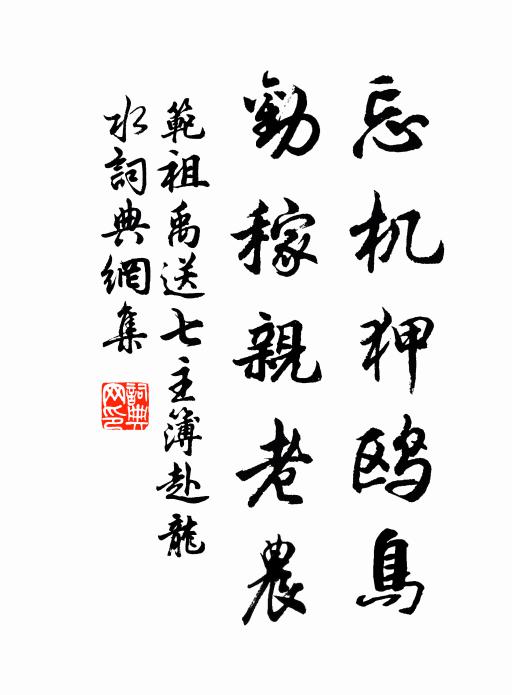 忘机狎鸥鳥
勸稼親老農
範祖禹送七主簿赴龍
水詞典網集
詞典
网印